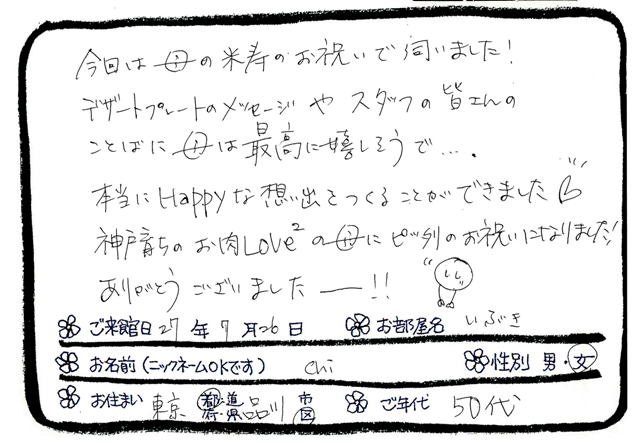 今回は母の米寿のお祝いで伺いました!
デザートプレートのメッセージや スタッフの皆さんの
ことばに母は最高に嬉しそうで….
本当にHappyな想い出をつくることができました
神戸育ちのお肉Love²の母にピッタリのお祝いになりました!
ありがとうございました ー!!
ご来館日 27 年 7 月 26 日 お部屋名 いぶき
お名前(ニックネームOKです) chi 性別 男・女
お住まい 東京 都・道・府・県 品川 市・区 ご年代 50代